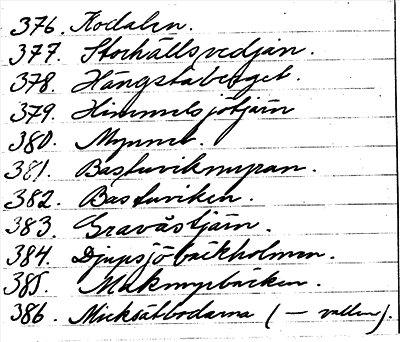 376. Kodalen.
377. Storhållsvedjan.
378. Hängstaberget.
379. Himmelsjötjärn
380. Mynnet.
381. Bastuvikmyran.
382. Bastuviken.
383. Gravåstjärn.
384. Djupsjöbäckholmen.
385. Makmyrbäcken.
386. Micksätbodarna (— vallen).